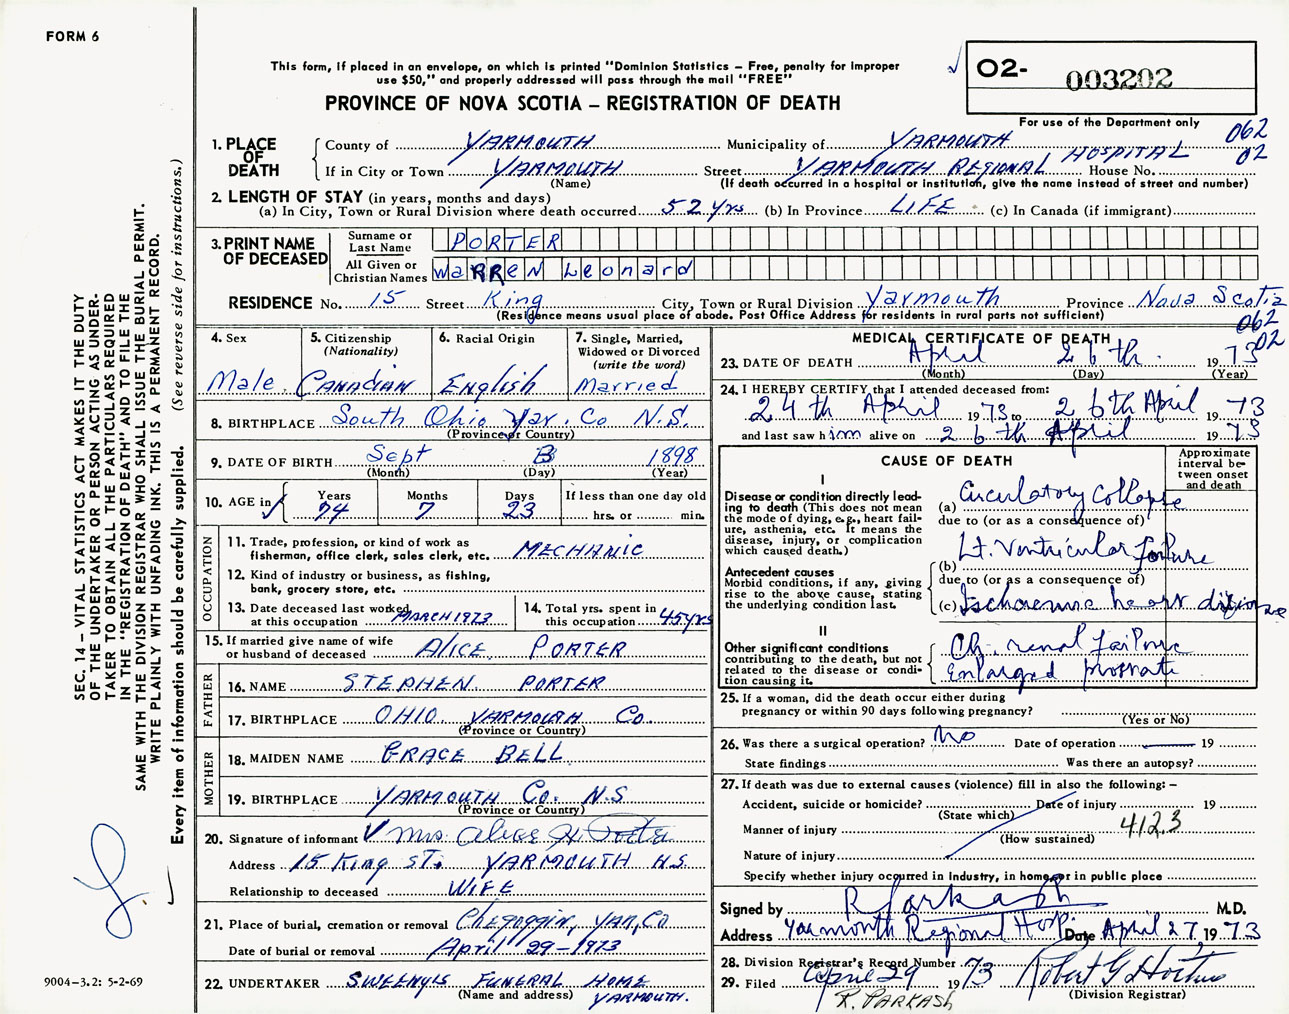 FORM 6
This form, if placed in an envelope, on which is printed "Dominion Statistics – Free, penalty for improper
use $50," and properly addressed will pass through the mail "FREE"
PROVINCE OF NOVA SCOTIA – REGISTRATION OF DEATH
02- 003202
For use of the Department only
062
02
1. PLACE OF DEATH
County of YARMOUTH Municipality of YARMOUTH
If in City or Town YARMOUTH Street YARMOUTH REGIONAL HOSPITAL House No.
(Name) (If death occurred in a hospital or institution, give the name instead of street and number)
2. LENGTH OF STAY (in years, months and days)
(a) In City, Town or Rural Division where death occurred 52 yrs (b) In Province LIFE (c) In Canada (if immigrant)
3. PRINT NAME OF DECEASED
Surname or Last Name PORTER
All Given or Christian Names WARREN Leonard
RESIDENCE No. 15 Street King City, Town or Rural Division Yarmouth Province Nova Scotia
(Residence means usual place of abode. Post Office Address for residents in rural parts not sufficient)
062
02
4. Sex
Male
5. Citizenship
(Nationality)
Canadian
6. Racial Origin
English
7. Single, Married,
Widowed or Divorced
(write the word)
Married
8. BIRTHPLACE South Ohio Yar. Co N.S.
(Province or Country)
9. DATE OF BIRTH Sept 3 1898
(Month) (Day) (Year)
10. AGE in
Years Months Days If less than one day old
74 7 23 hrs. or min.
OCCUPATION
11. Trade, profession, or kind of work as
fisherman, office clerk, sales clerk, etc. MECHANIC
12. Kind of industry or business, as fishing,
bank, grocery store, etc.
13. Date deceased last worked
at this occupation MARCH 1973
14. Total yrs. spent in
this occupation 45 yrs
15. If married give name of wife
or husband of deceased ALICE PORTER
FATHER
16. NAME STEPHEN PORTER
17. BIRTHPLACE OHIO YARMOUTH Co.
(Province or Country)
MOTHER
18. MAIDEN NAME GRACE BELL
19. BIRTHPLACE YARMOUTH Co. N.S
(Province or Country)
20. Signature of informant Mrs Alice H. Porter
Address 15 King ST. YARMOUTH N.S.
Relationship to deceased WIFE
21. Place of burial, cremation or removal Chegoggin, Yar, Co
Date of burial or removal April 29-1973
22. UNDERTAKER SWEENYS FUNERAL HOME
(Name and address) YARMOUTH.
MEDICAL CERTIFICATE OF DEATH
23. DATE OF DEATH April 26th 1973
(Month) (Day) (Year)
24. I HEREBY CERTIFY that I attended deceased from:
24th April 1973 to 26th April 1973
and last saw him alive on 26th April 1973
CAUSE OF DEATH
Approximate interval between onset and death
I
Disease or condition directly leading
to death (This does not mean
the mode of dying, e.g., heart failure,
asthenia, etc. It means the
disease, injury, or complication
which caused death.)
(a) Circulatory Collapse
due to (or as a consequence of)
Antecedent causes
Morbid conditions, if any, giving
rise to the above cause, stating
the underlying condition last.
(b) Lt. Ventricular failure
due to (or as a consequence of)
(c) Ischaemic heart disease
II
Other significant conditions
contributing to the death, but not
related to the disease or condition
causing it.
Ch. renal failure
Enlarged prostate
25. If a woman, did the death occur either during
pregnancy or within 90 days following pregnancy?
(Yes or No)
26. Was there a surgical operation? No Date of operation 19
State findings Was there an autopsy?
27. If death was due to external causes (violence) fill in also the following: –
Accident, suicide or homicide? Date of injury 19
(State which)
Manner of injury 412.3
(How sustained)
Nature of injury
Specify whether injury occurred in industry, in home, or in public place
Signed by R Parkash M.D.
Address Yarmouth Regional Hosp. Date April 27, 1973
28. Division Registrar's Record Number
29. Filed April 29 1973
(Division Registrar)
R. PARKASH
SEC. 14 – VITAL STATISTICS ACT MAKES IT THE DUTY
OF THE UNDERTAKER OR PERSON ACTING AS UNDERTAKER
TO OBTAIN ALL THE PARTICULARS REQUIRED
IN THE "REGISTRATION OF DEATH" AND TO FILE THE
SAME WITH THE DIVISION REGISTRAR WHO SHALL ISSUE THE BURIAL PERMIT.
WRITE PLAINLY WITH UNFADING INK. THIS IS A PERMANENT RECORD.
Every item of information should be carefully supplied. (See reverse side for instructions.)
9004-3.2: 5-2-69